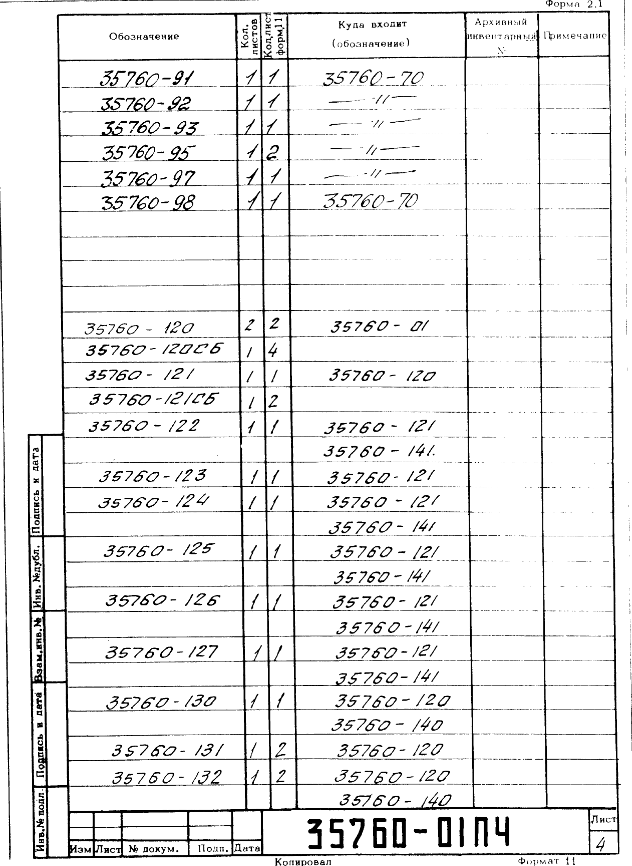 Форма 2.1
Обозначение Кол. листов Кол.лист форм.11 Куда входит (обозначение) Архивный инвентарный № Примечание
35760-91 1 1 35760-70
35760-92 1 1 —〃—
35760-93 1 1 —〃—
35760-95 1 2 —〃—
35760-97 1 1 —〃—
35760-98 1 1 35760-70
35760-120 2 2 35760-01
35760-120СБ 1 4
35760-121 1 1 35760-120
35760-121СБ 1 2
35760-122 1 1 35760-121
35760-141.
35760-123 1 1 35760-121
35760-124 1 1 35760-121
35760-141
35760-125 1 1 35760-121
35760-141
35760-126 1 1 35760-121
35760-141
35760-127 1 1 35760-121
35760-141
35760-130 1 1 35760-120
35760-140
35760-131 1 2 35760-120
35760-132 1 2 35760-120
35760-140
Подпись и дата
Инв. №дубл.
Взам.инв.№
Подпись и дата
Инв.№ подл.
Изм Лист № докум. Подп. Дата
35760-01ПЧ
Лист
4
Копировал Формат 11